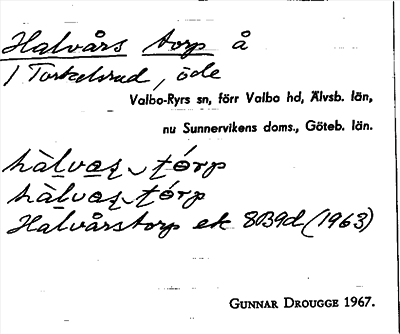 Halvårs torp å
1 Torkelsrud, öde
Valbo-Ryrs sn, förr Valbo hd, Älvsb. län,
nu Sunnervikens doms., Göteb. län.
Halvårstorp ek 8B9d (1963)
GUNNAR DROUGGE 1967.